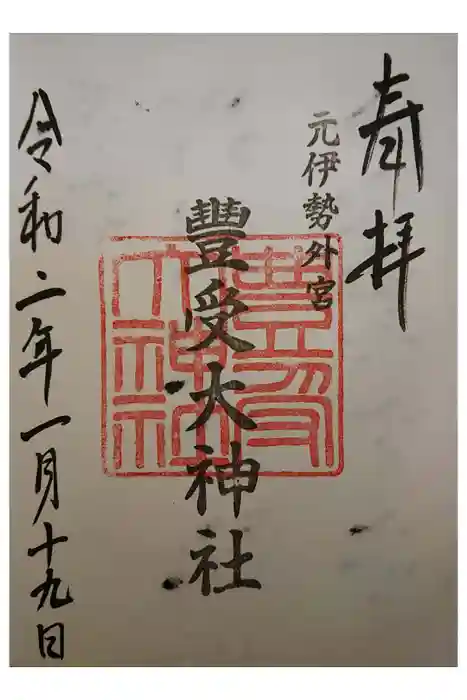 奉拝
元伊勢外宮
豐受大神社
令和二年一月十九日